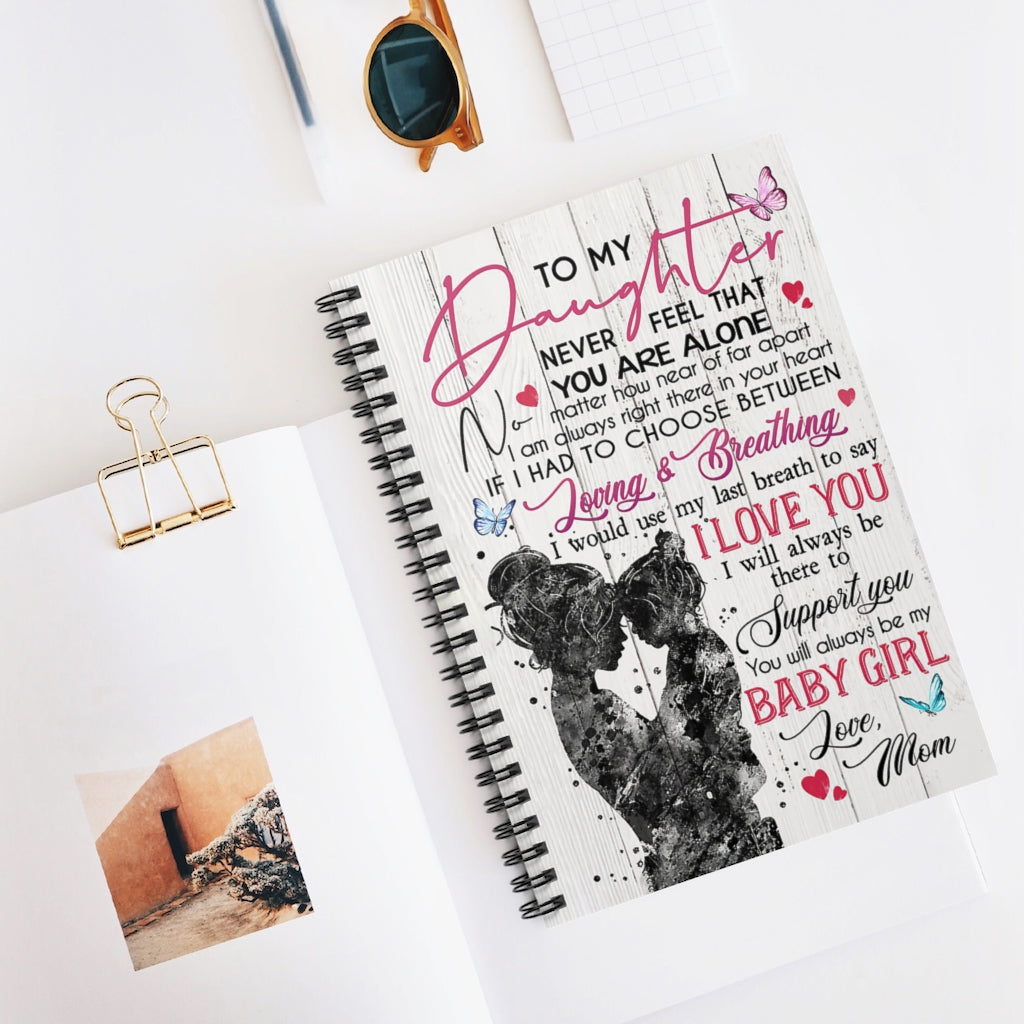 TO MY
Daughter
NEVER FEEL THAT
YOU ARE ALONE
No matter how near of far apart
I am always right there in your heart
IF I HAD TO CHOOSE BETWEEN
Loving & Breathing
i would use my last breath to say
I LOVE YOU
I will always be
there to
Support you
You will always be my
BABY GIRL
Love,
Mom